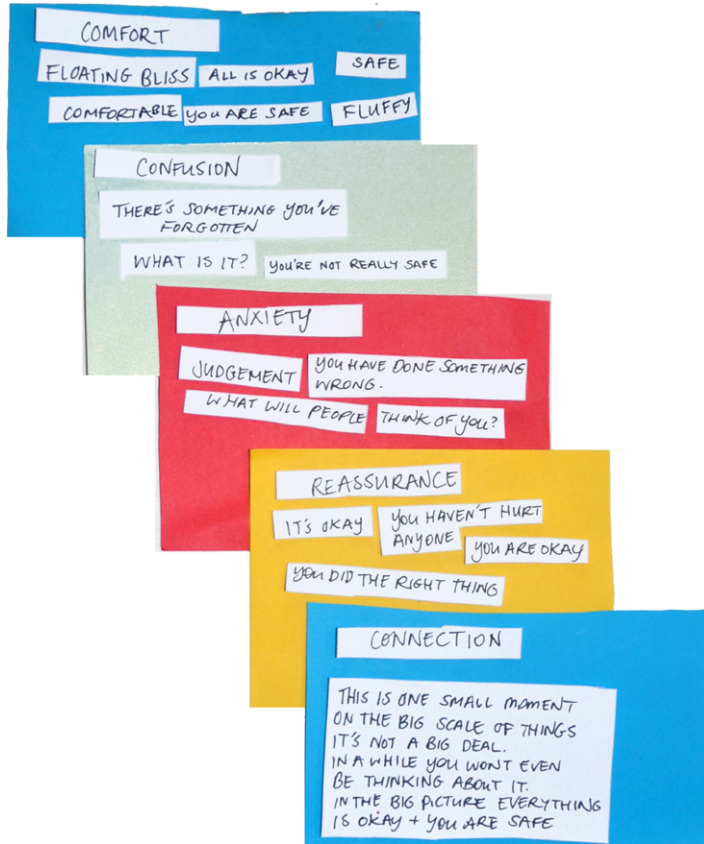 COMFORT
FLOATING BLISS ALL IS OKAY SAFE
COMFORTABLE YOU ARE SAFE FLUFFY
CONFUSION
THERE'S SOMETHING YOU'VE
FORGOTTEN
WHAT IS IT? YOU'RE NOT REALLY SAFE
ANXIETY
JUDGEMENT
YOU HAVE DONE SOMETHING
WRONG.
WHAT WILL PEOPLE THINK OF YOU?
REASSURANCE
IT'S OKAY
YOU HAVEN'T HURT
ANYONE
YOU ARE OKAY
YOU DID THE RIGHT THING
CONNECTION
THIS IS ONE SMALL MOMENT
ON THE BIG SCALE OF THINGS
IT'S NOT A BIG DEAL.
IN A WHILE YOU WONT EVEN
BE THINKING ABOUT IT.
IN THE BIG PICTURE EVERYTHING
IS OKAY + YOU ARE SAFE